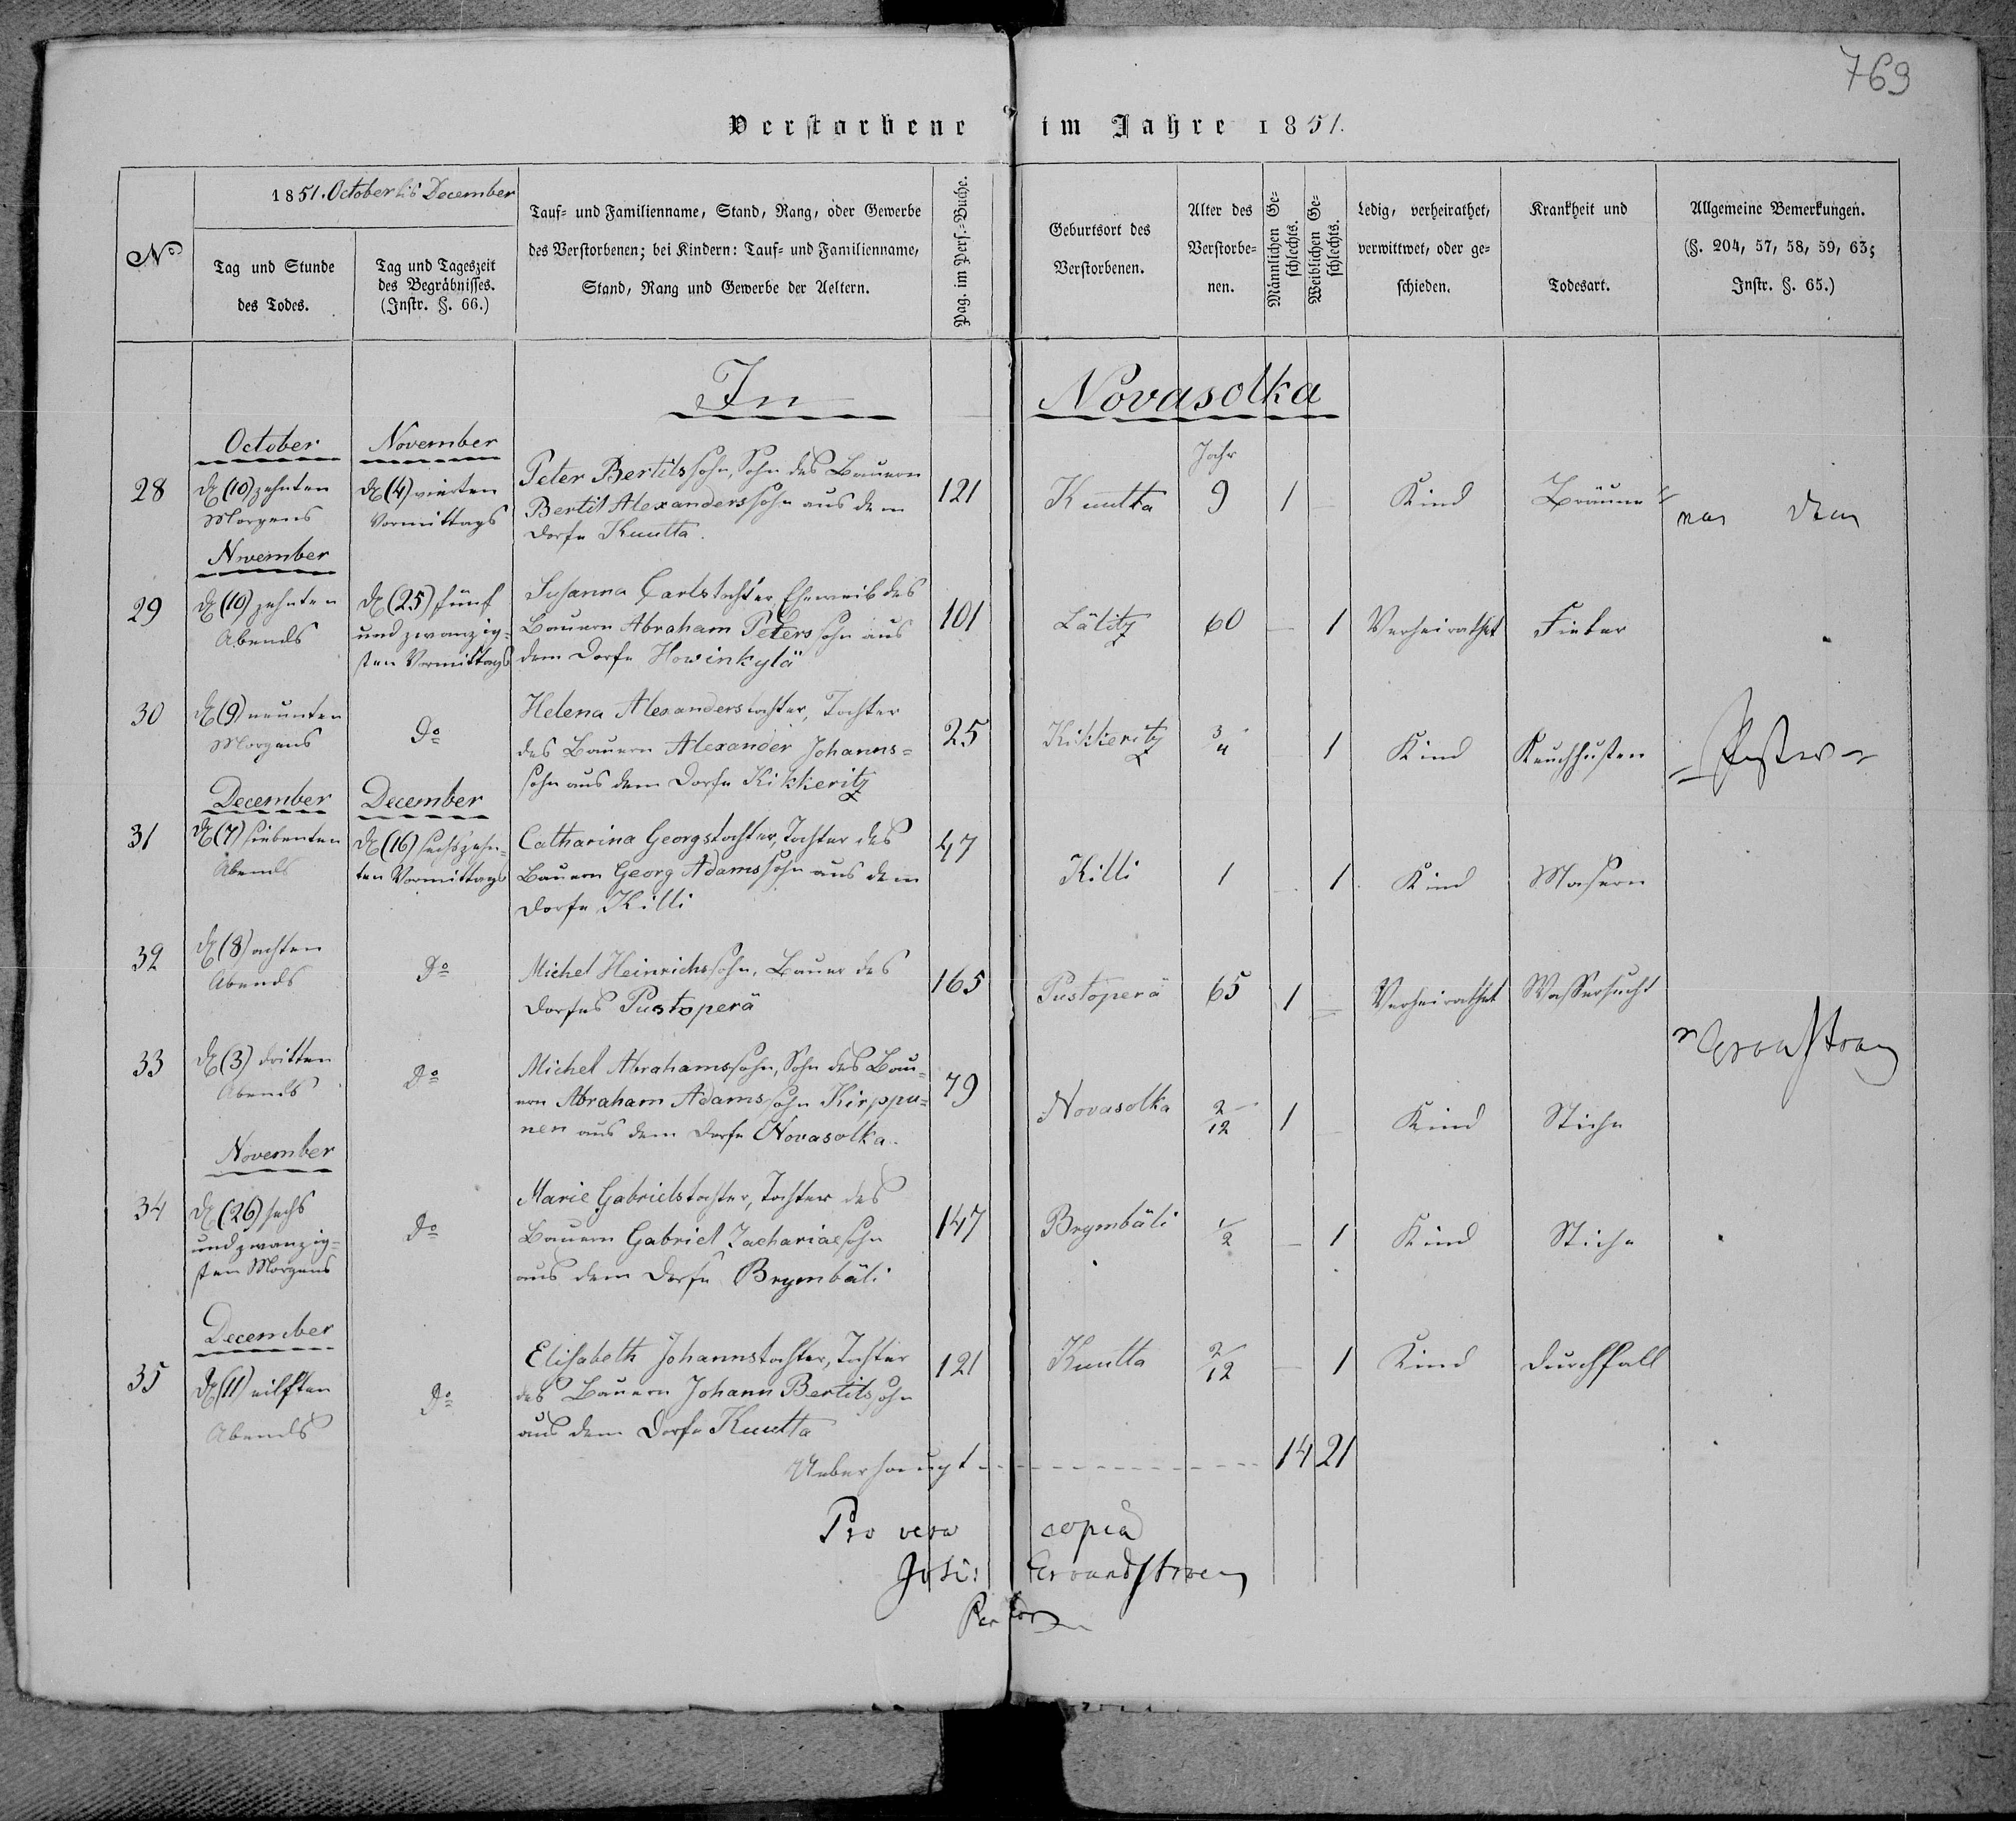 769
Verstorbene im Jahre 1851.
1851. October bis December
No
Tag und Stunde des Todes.
Tag und Tageszeit des Begräbnisses. (Instr. §. 66.)
Tauf- und Familienname, Stand, Rang, oder Gewerbe
des Verstorbenen; bei Kindern: Tauf- und Familienname,
Stand, Rang und Gewerbe der Aeltern.
Pag. im Pers.-Buche.
Geburtsort des Verstorbenen.
Alter des Verstorbe-nen.
Männlichen Ge-schlechts.
Weiblichen Ge-schlechts.
Ledig, verheirathet, verwittwet, oder ge-schieden.
Krankheit und Todesart.
Allgemeine Bemerkungen.
(§. 204, 57, 58, 59, 63;
Instr. §. 65.)
In Novasolka
October
November
Jahr
28
d. (10) zehnten
Morgens
d. (4) vierten
Vormittags
Peter Bertilssohn, Sohn des Bauern
Bertil Alexanderssohn aus dem
Dorfe Kuutta.
121
Kuutta
9
1
Kind
Bräune
November
29
d. (10) zehnten
Abends
d. (25) fünf
und zwanzig-
sten Vormittags
Susanna Carlstochter, Eheweib des
Bauern Abraham Peterssohn aus
dem Dorfe Howinkylä
101
Lälitz
60
1
Verheirathet
Fieber
30
d. (9) neunten
Morgens
Do
Helena Alexanderstochter, Tochter
des Bauern Alexander Johanns-
sohn aus dem Dorfe Kikkeritz
25
Kikkeritz
3/4
1
Kind
Keuchhusten
Pastor
December
December
31
d. (7) siebenten
Abends
d. (16) sechszehn-
ten Vormittags
Catharina Georgstochter, Tochter des
Bauern Georg Adamssohn aus dem
Dorfe Killi
47
Killi
1
1
Kind
Masern
32
d. (8) achten
Abends
Do
Michel Heinrichssohn, Bauer des
Dorfes Pustoperä
165
Pustoperä
65
1
Verheirathet
Wassersucht
33
d. (3) dritten
Abends
Do
Michel Abrahamssohn, Sohn des Bau-
ern Abraham Adamssohn Kirppu-
nen aus dem Dorfe Novasolka.
79
Novasolka
2/12
1
Kind
Stiche
November
34
d. (26) sechs
und zwanzig-
sten Morgens
Do
Marie Gabrielstochter, Tochter des
Bauern Gabriel Zachariaesohn
aus dem Dorfe Brymbäli
147
Brymbäli
1/2
1
Kind
Stiche
December
35
d. (11) eilften
Abends
Do
Elisabeth Johannstochter, Tochter
des Bauern Johann Bertilssohn
aus dem Dorfe Kuutta
121
Kuutta
2/12
1
Kind
Durchfall
Ueberhaupt
14 21
Pro vera copia
Pastor